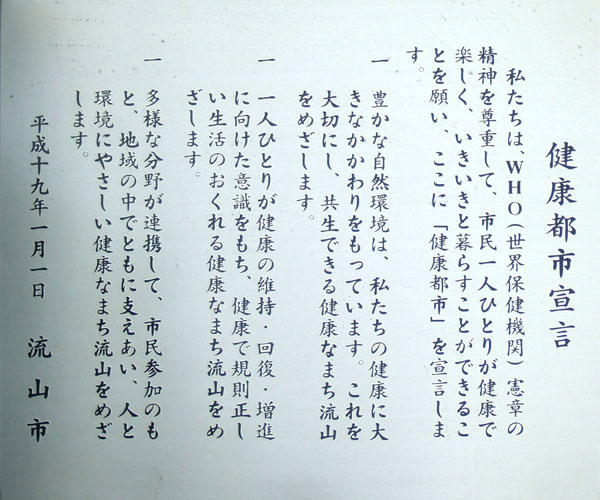 健康都市宣言
私たちは、WHO(世界保健機関)憲章の
精神を尊重して、市民一人ひとりが健康で
楽しく、いきいきと暮らすことができるこ
とを願い、ここに「健康都市」を宣言しま
す。
一 豊かな自然環境は、私たちの健康に大
きなかかわりをもっています。これを
大切にし、共生できる健康なまち流山
をめざします。
一 一人ひとりが健康の維持・回復・増進
に向けた意識をもち、健康で規則正し
い生活のおくれる健康なまち流山をめ
ざします。
一 多様な分野が連携して、市民参加のも
と、地域の中でともに支えあい、人と
環境にやさしい健康なまち流山をめざ
します。
平成十九年一月一日 流山市